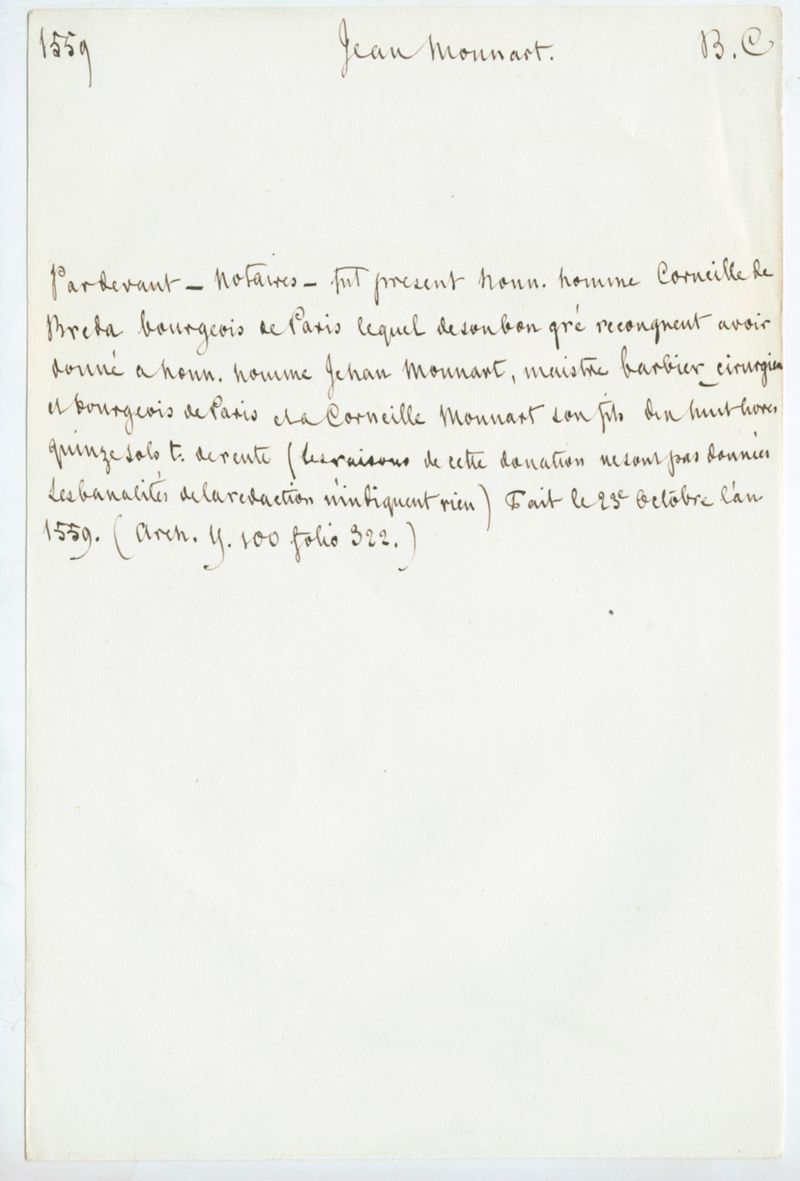 1559 Jean Monnart. B. C
Pardevant — Notaires — fut present honn. homme Corneille de
Breda bourgeois de Paris lequel de son bon gré recongneut avoir
donné a honn. homme Jehan Monnart, maistre barbier cirurgien
et bourgeois de Paris et a Corneille Monnart son fils huit livres
quinze sols t. de rente (les raisons de cette donation ne sont pas données
Les banalités de la redaction n'indiquent rien) Fait le 23e Octobre l'an
1559. (Arch. Y. 100 folio 322.)